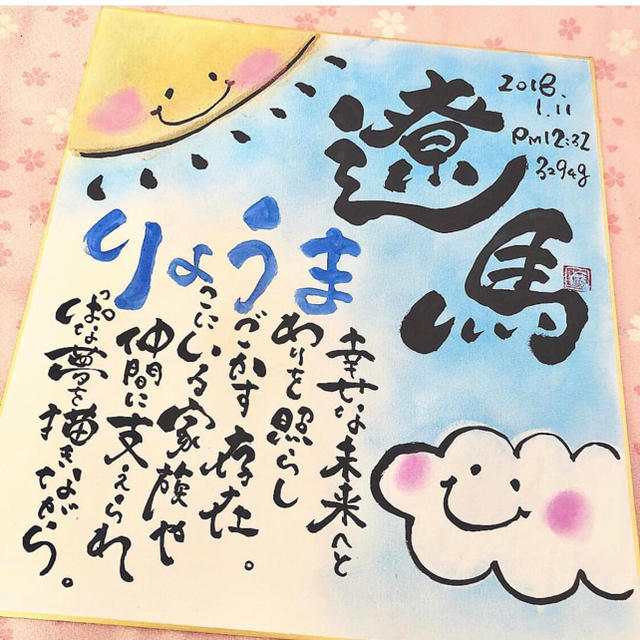 遼馬
2018.
1.11
PM12:32
3294g
りょうま
幸せな未来へと
わりを照らし
ごかす存在。
こにいる家族や
仲間に支えられ
っぱな夢を描きながら。